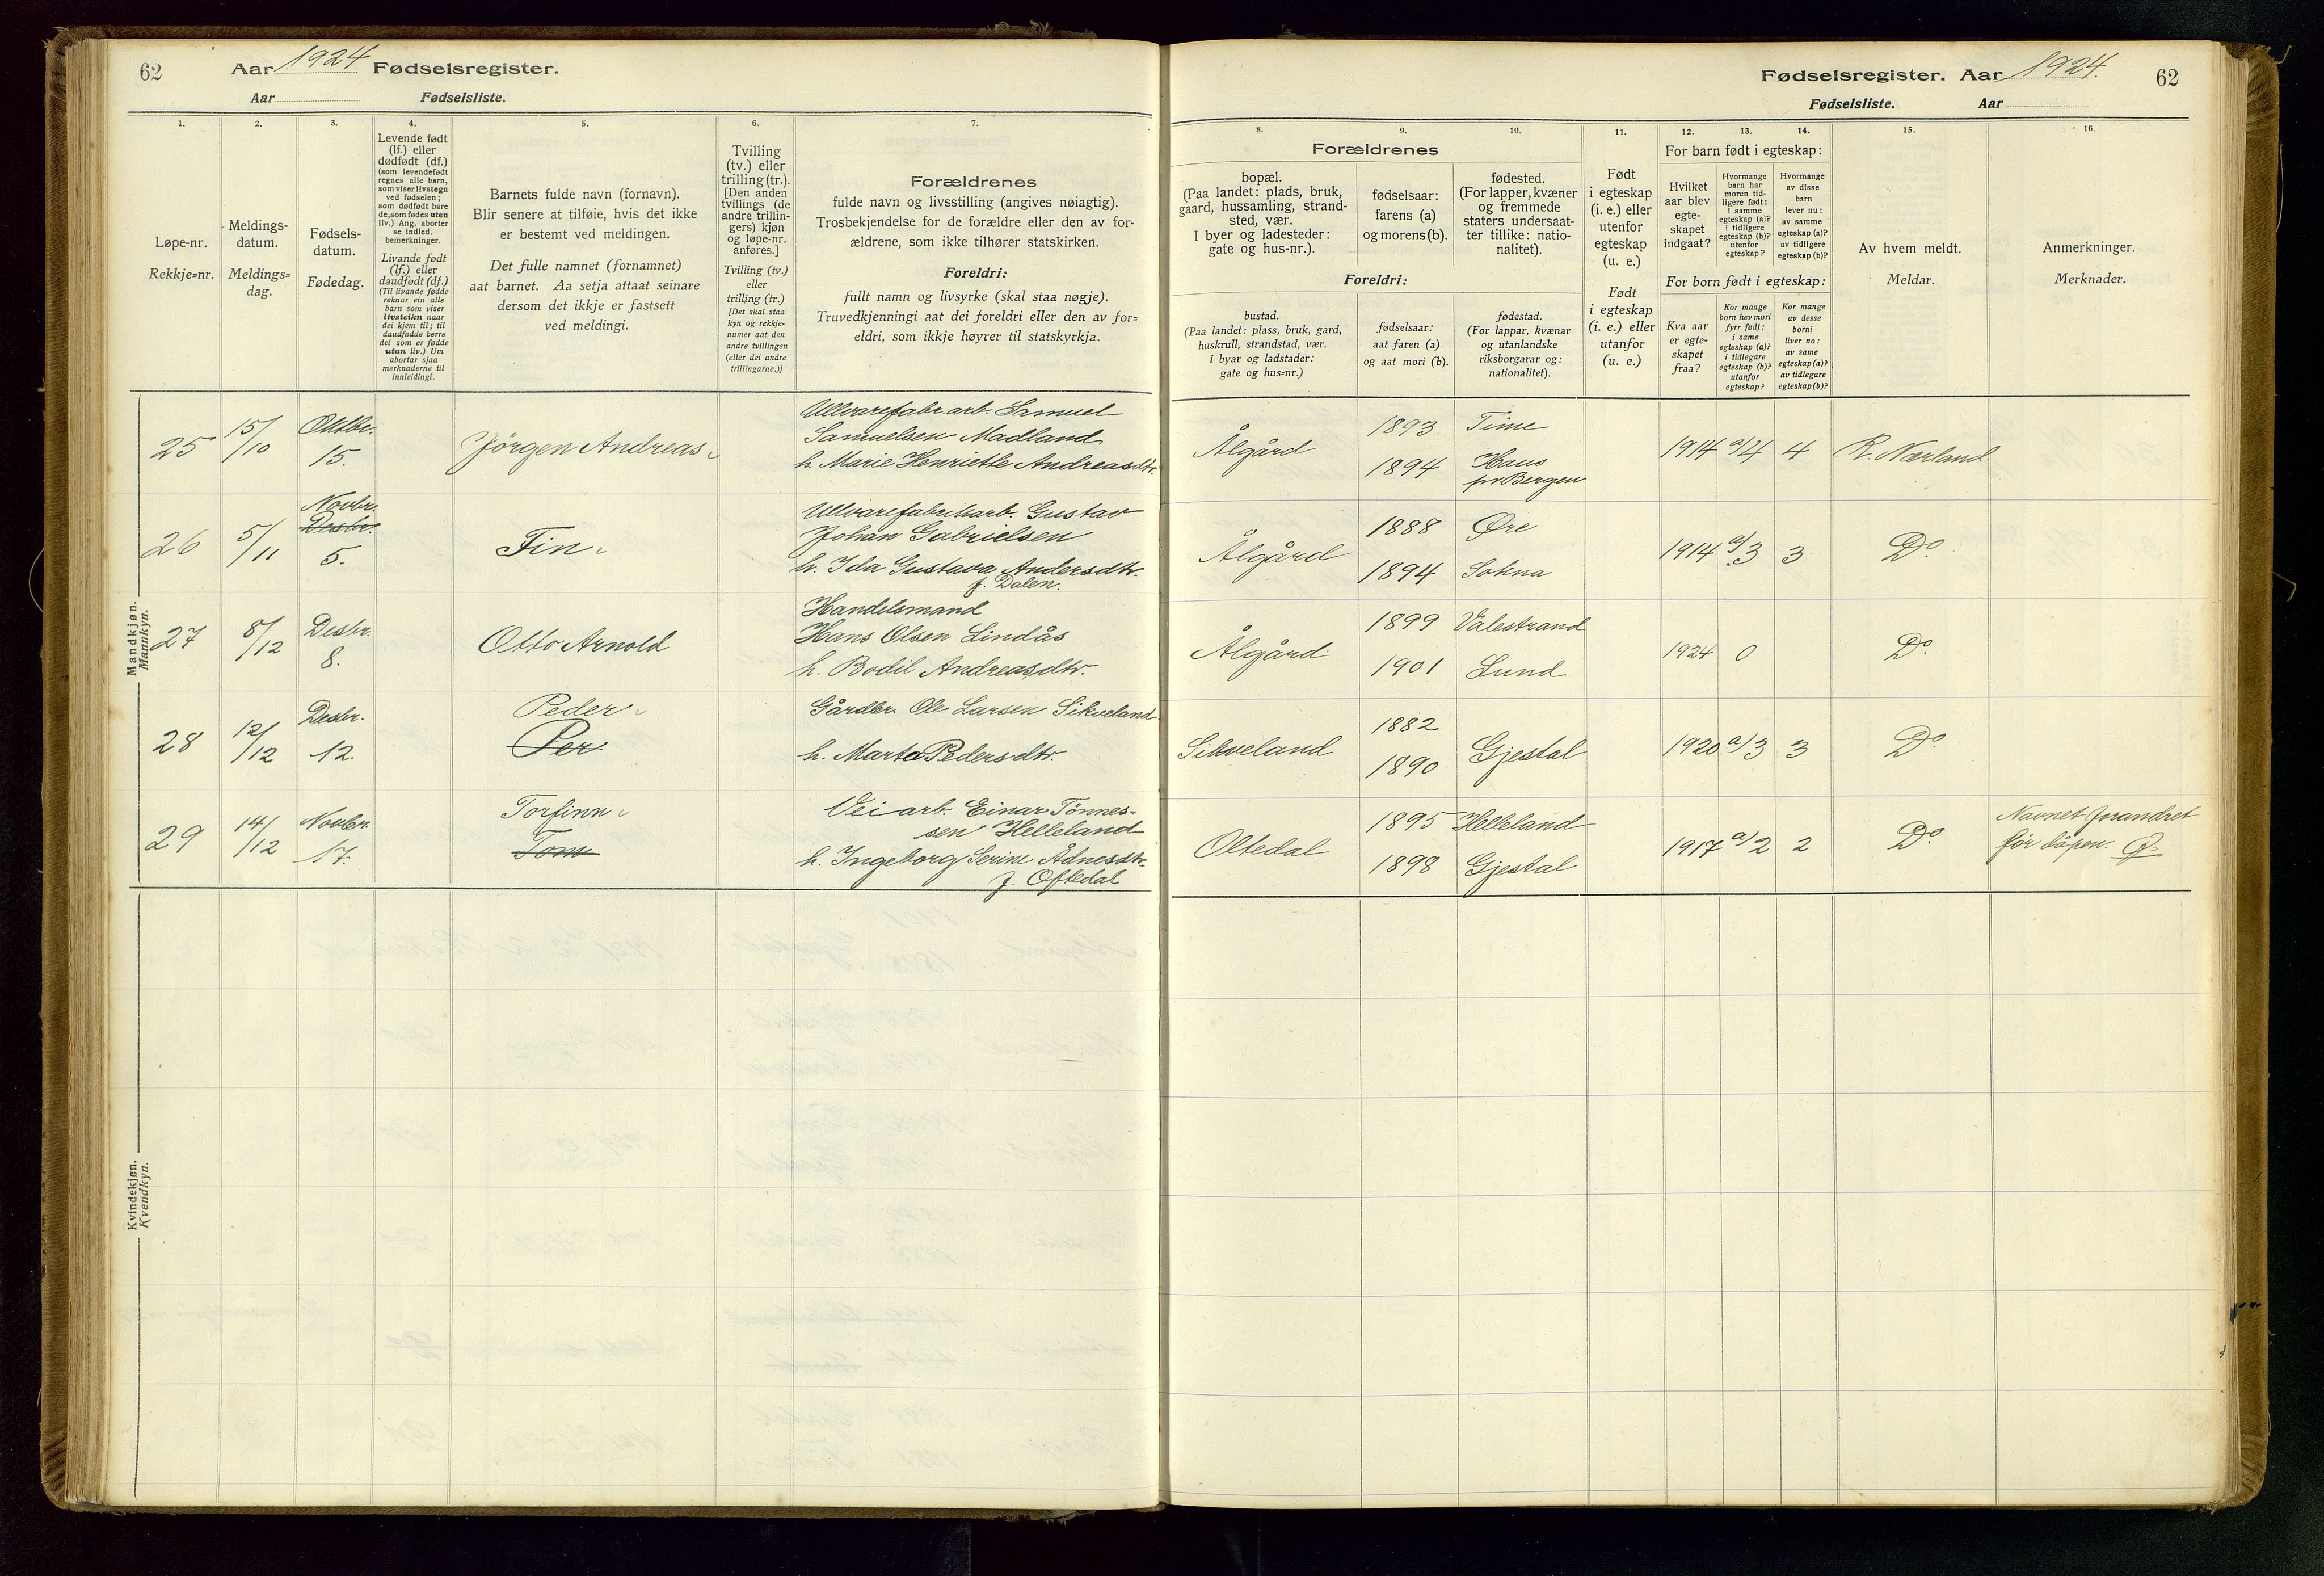 62
Aar 1924 Fødselsregister.
Aar Fødselsliste.
Fødselsregister. Aar 1924.
62
Fødselsliste. Aar
1.
Løpe-nr.
Rekkje=nr.
2.
Meldings-
datum.
Meldings=
dag.
3.
Fødsels-
datum.
Fødedag.
4.
Levende født
(lf.) eller
dødfødt (df.)
(som levendefødt
regnes alle barn,
som viser livstegn
ved fødselen;
som dødfødt bare
de, som fødes uten
liv.) Ang. aborter
se indled.
bemerkninger.
Livande født
(lf.) eller
daudfødt (df.)
(Til livande fødde
reknar ein alle
barn som viser
livsteikn naar
dei kjem til; til
daudfødde berre
dei som er fødde
utan liv.) Um
abortar sjaa
merknaderne til
innleidingi.
5.
Barnets fulde navn (fornavn).
Blir senere at tilføie, hvis det ikke
er bestemt ved meldingen.
Det fulle namnet (fornamnet)
aat barnet. Aa setja attaat seinare
dersom det ikkje er fastsett
ved meldingi.
6.
Tvilling
(tv.) eller
trilling (tr.).
[Den anden
tvillings (de
andre trillin-
gers) kjøn
og løpe-nr.
anføres.]
Tvilling (tv.)
eller
trilling (tr.)
[Det skal staa
kyn og rekkje-
numer aat den
andre tvillingen
(eller dei andre
trillingarne.)]
7.
Forældrenes
fulde navn og livsstilling (angives nøiagtig).
Trosbekjendelse for de forældre eller den av for-
ældrene, som ikke tilhører statskirken.
Foreldri:
fullt namn og livsyrke (skal staa nøgje).
Truvedkjenningi aat dei foreldri eller den av for=
eldri, som ikkje høyrer til statskyrkja.
8.
Forældrenes
bopæl.
(Paa landet: plads, bruk,
gaard, hussamling, strand-
sted, vær.
I byer og ladesteder:
gate og hus-nr.).
Foreldri:
bustad.
(Paa landet: plass, bruk, gard,
huskrull, strandstad, vær.
I byar og ladstader:
gate og hus=nr.)
9.
fødselsaar:
farens (a)
og morens (b).
fødselsaar:
aat faren (a)
og aat mori (b).
10.
fødested.
(For lapper, kvæner
og fremmede
staters undersaat-
ter tillike: natio-
nalitet).
fødestad.
(For lappar, kvænar
og utanlandske
riksborgarar og:
nationalitet).
11.
Født
i egteskap
(i. e.) eller
utenfor
egteskap
(u. e.)
Født
i egteskap
(i. e.) eller
utanfor
(u. e.)
12.
For barn født i egteskap:
Hvilket
aar blev
egte-
skapet
indgaat?
For born født i egteskap:
Kva aar
er egte=
skapet
fraa?
13.
Hvormange
barn har
moren tid-
ligere født:
i samme
egteskap (a)?
i tidligere
egteskap (b)?
utenfor
egteskap?
Kor mange
born hev mori
fyrr født:
i same
egteskap (a)?
i tidlegare
egteskap (b)?
utanfor
egteskap?
14.
Hvormange
av disse
barn
lever nu:
av samme
egteskap (a)?
av tidligere
egteskap (b)?
Kor mange
av desse
borni
liver no:
av same
egteskap (a)?
av tidlegare
egteskap (b)?
15.
Av hvem meldt.
Meldar.
16.
Anmerkninger.
Merknader.
Mandkjøn.
Mannkyn.
25
15/10
Oktbr.
15.
Jörgen Andreas
Ullvarefabr.arb. Samuel
Samuelsen Madland
h. Marie Henriette Andreasdtr.
Ålgård
1893
1894
Time
Haus
pr Bergen
1914 a/4 4
R. Nærland
26
5/11
Novbr.
Desbr.
5.
Fin
Ullvarefabrikarb. Gustav
Johan Gabrielsen
h. Ida Gustava Andersdtr.
f. Dalen.
Ålgård
1888
1894
Øre
Sokna
1914 a/3 3
Do.
27
8/12
Desbr.
8.
Otto Arnold
Handelsmand
Hans Olsen Lindås
h. Bodil Andreasdtr.
Ålgård
1899
1901
Valestrand
Lund
1924 0
Do.
28
12/12
Desbr.
12.
Peder
Per
Gårdbr. Ole Larsen Sikveland
h. Marta Pedersdtr.
Sikveland
1882
1890
Gjestal
1920 a/3 3
Do.
29
14/12
Novbr.
17.
Torfinn
Tom
Vei arb. Einar Tönnes-
sen Helleland
h. Ingeborg Serine Ådnesdtr.
f. Oftedal
Oltedal
1895
1898
Helleland
Gjestal
1917 a/2 2
Do.
Navnet forandret
før dåpen.
Kvindekjøn.
Kvendkyn.